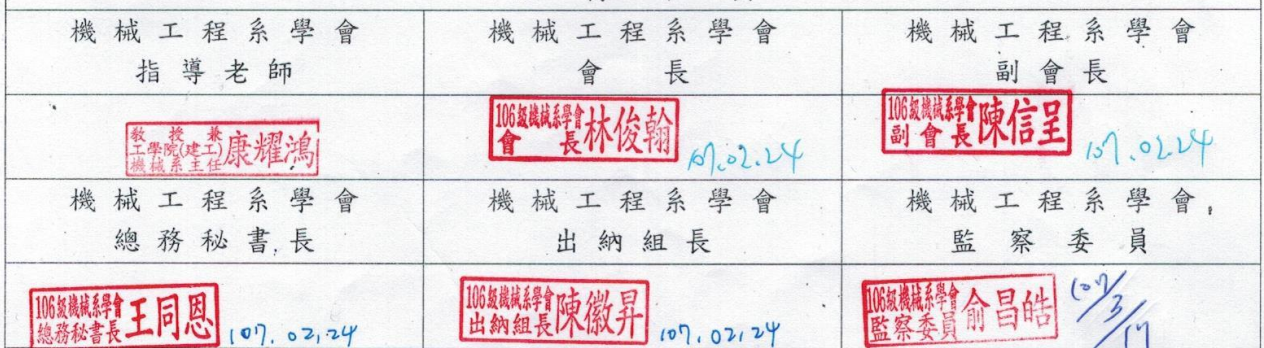 機械工程系學會
指導老師
機械工程系學會
會長
機械工程系學會
副會長
教授兼
工學院(建工)
機械系主任
康耀鴻
106級機械系學會
會長
林俊翰
107.02.24
106級機械系學會
副會長
陳信呈
107.02.24
機械工程系學會
總務秘書長
機械工程系學會
出納組長
機械工程系學會
監察委員
106級機械系學會
總務秘書長
王同恩
107.02.24
106級機械系學會
出納組長
陳徽昇
107.02.24
106級機械系學會
監察委員
俞昌皓
107/3/17